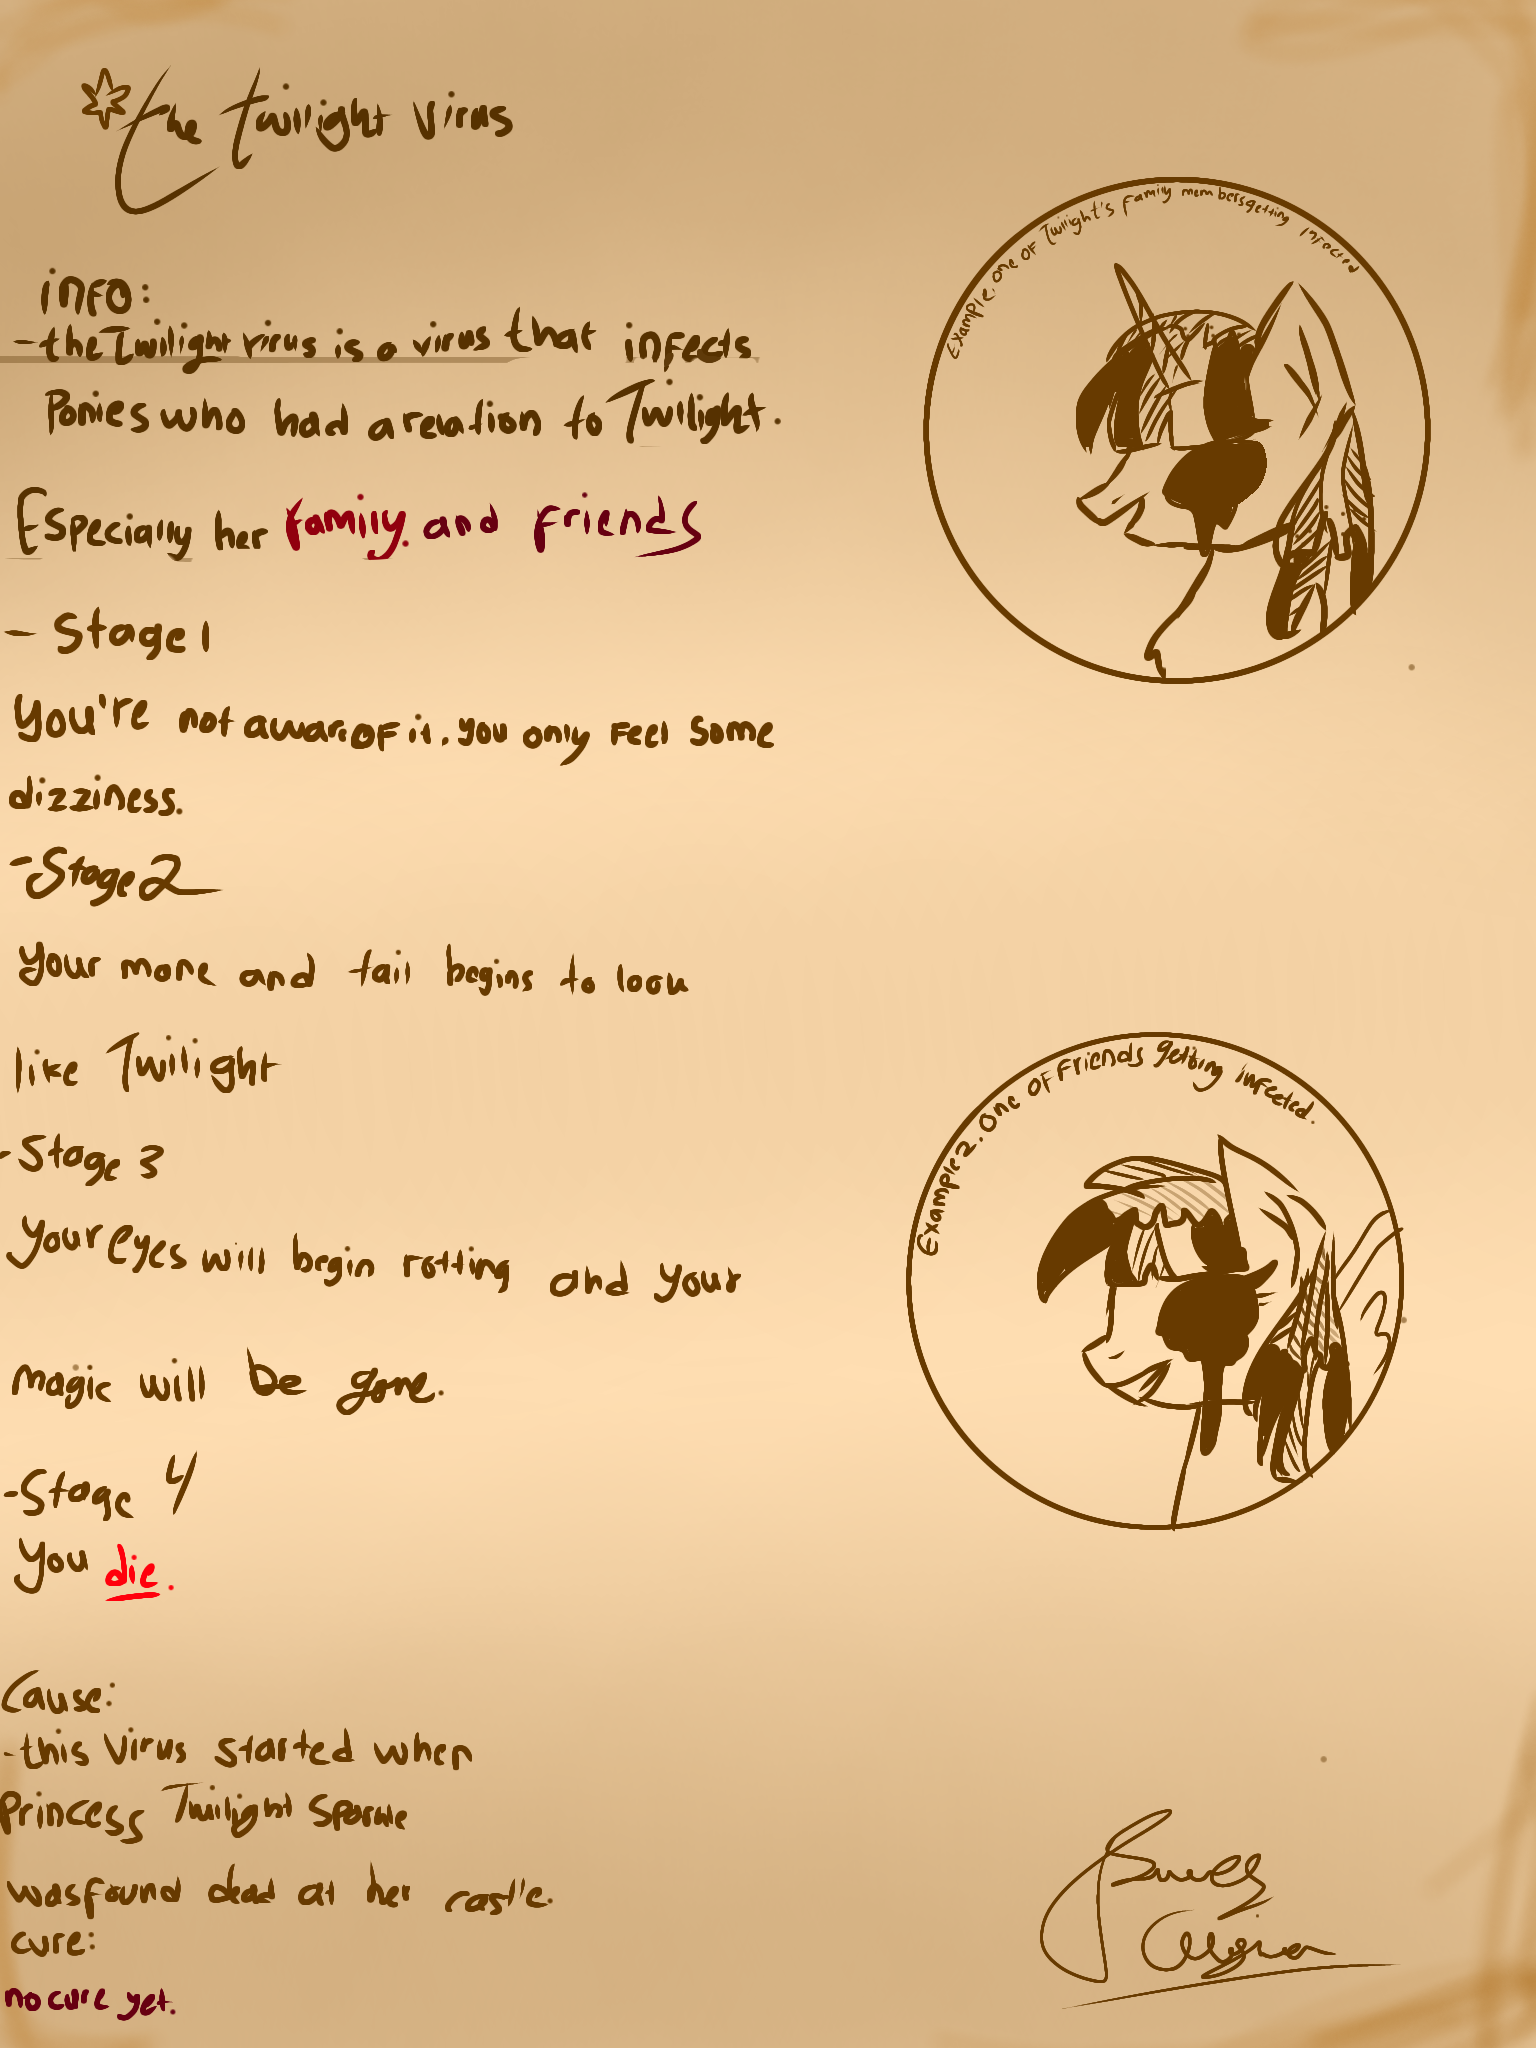 the Twilight Virus
info:
-the Twilight virus is a virus that infects
Ponies who had a relation to Twilight.
Especially her family. and friends
- Stage 1
You're not aware of it. you only feel some
dizziness.
-Stage 2
Your mane and tail begins to look
like Twilight
-Stage 3
Your eyes will begin rotting and your
magic will be gone.
-Stage 4
You die.
Cause:
-this Virus started when
Princess Twilight Sparkle
was found dead at her castle.
cure:
no cure yet.
Example. one of Twilight's family members getting infected
Example 2. One of friends getting infected.